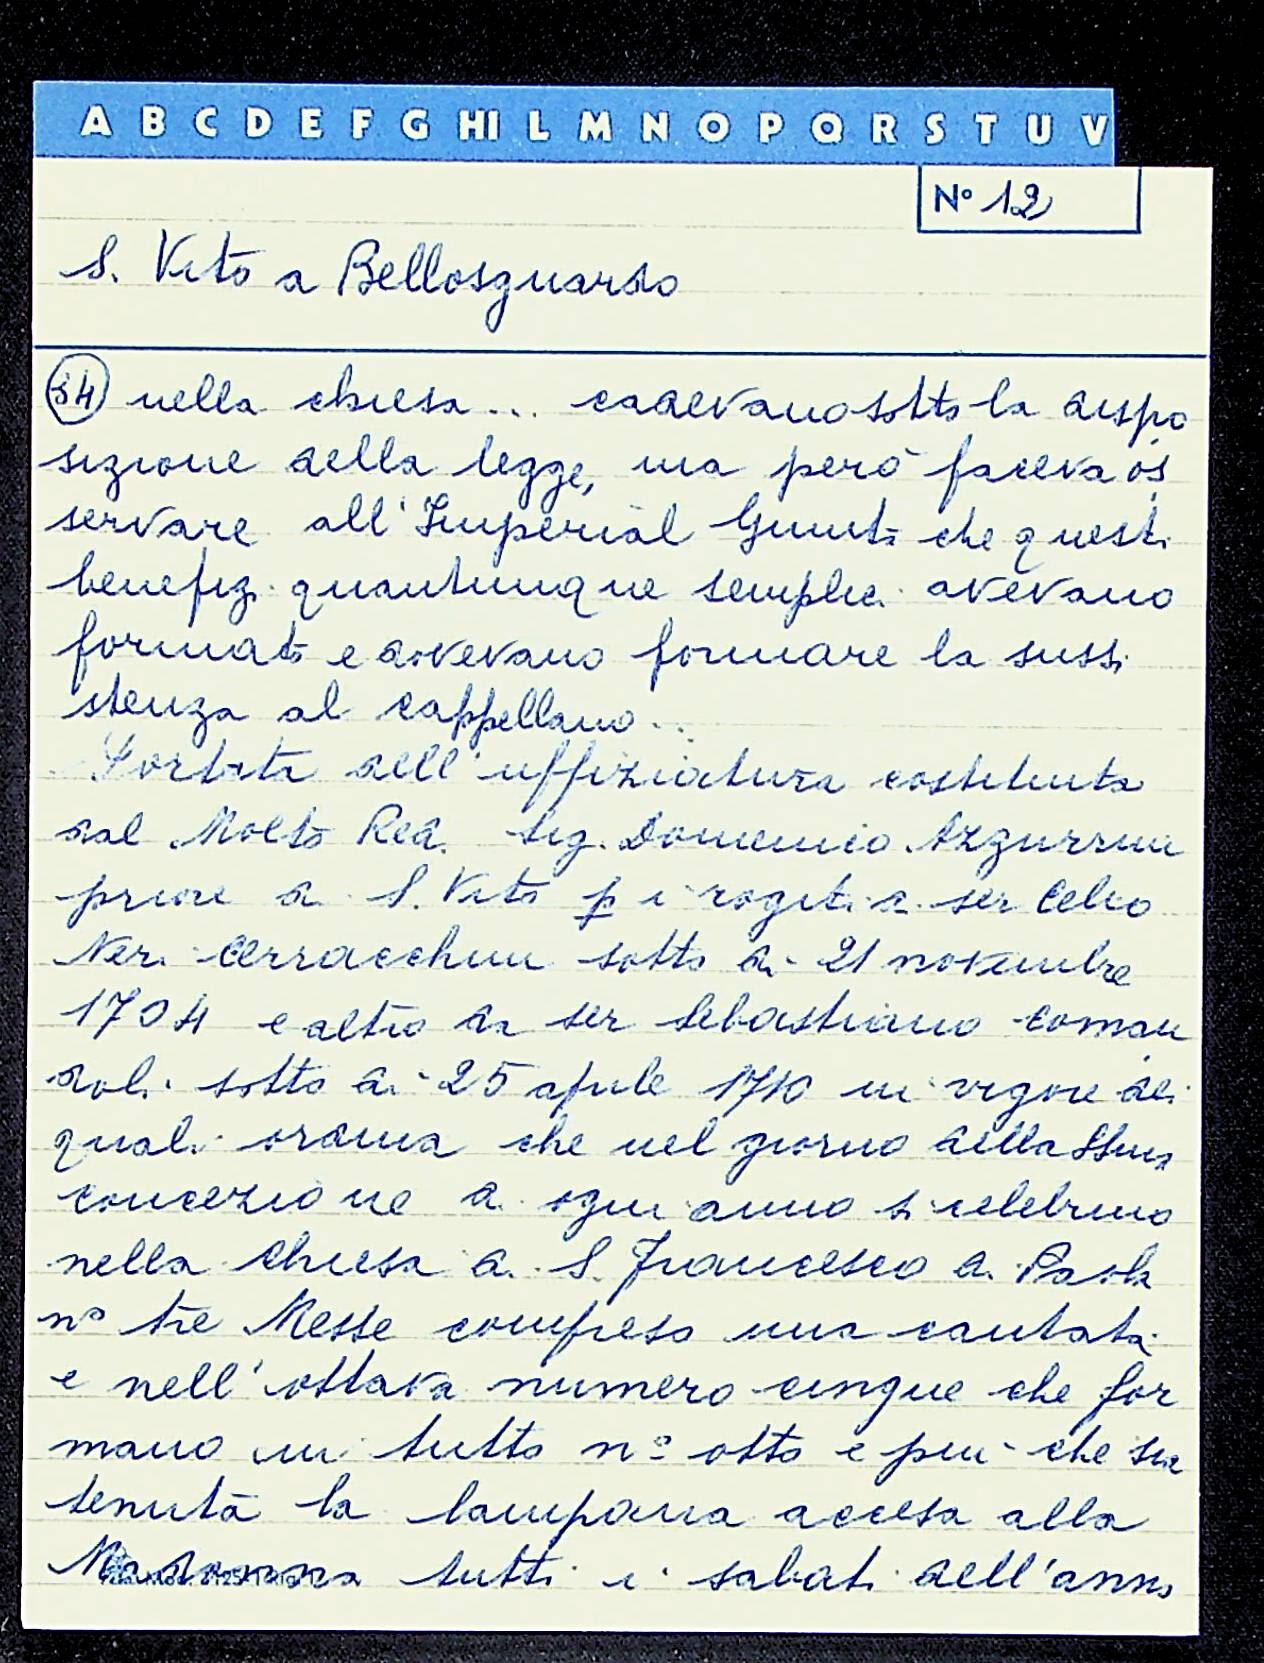 A B C D E F G HI L M N O P Q R S T U V
N° 12
S. Vito a Bellosguardo
34 nella chiesa... cadevano sotto la dispo
sizione della legge, ma però faceva os
servare all'Imperial Giunta che questi
benefizi quantunque semplici avevano
formato e dovevano formare la sussi
stenza al cappellano...
Portata dell'uffiziatura costituita
dal Molto Red. Sig. Domenico Azzurrini
priore di S. Vito p i rogiti di ser Celio
Neri Cerracchini sotto dì 21 novembre
1704 e altro di ser Sebastiano Coman
doli sotto dì 25 aprile 1710 in vigore dei
quali ordina che nel giorno della SSma
concezione di ogni anno si celebrino
nella Chiesa di S. Francesco di Paola
n° tre Messe compreso una cantata
e nell'ottava numero cinque che for
mano in tutto n° otto e più che sia
tenuta la lampana accesa alla
Madonna tutti i sabati dell'anno